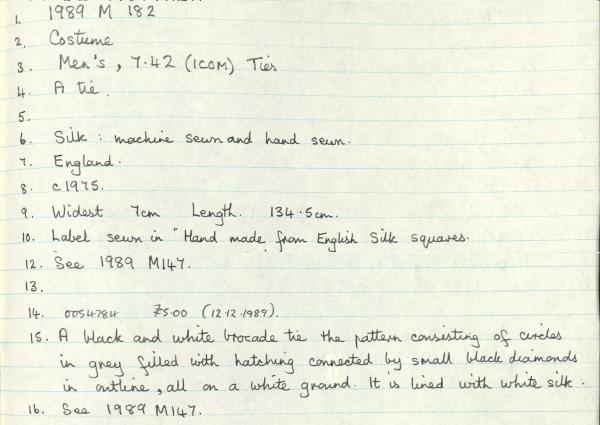 1. 1989 M 182
2. Costume
3. Men's, 7.42 (ICOM) Ties
4. A tie.
5.
6. Silk : machine sewn and hand sewn.
7. England.
8. c1975.
9. Widest 7cm Length. 134.5cm.
10. Label sewn in "Hand made from English Silk squares.
12. See 1989 M147.
13.
14. 0054784 £5.00 (12.12.1989).
15. A black and white brocade tie the pattern consisting of circles
in grey filled with hatching connected by small black diamonds
in outline, all on a white ground. It is lined with white silk.
16. See 1989 M147.